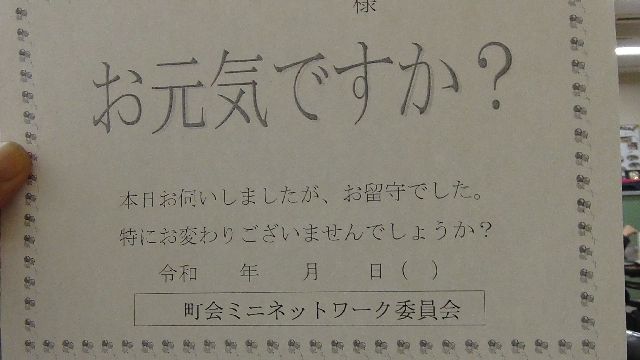 様
お元気ですか？
本日お伺いしましたが、お留守でした。
特にお変わりございませんでしょうか？
令和　　年　　月　　日（　）
町会ミニネットワーク委員会